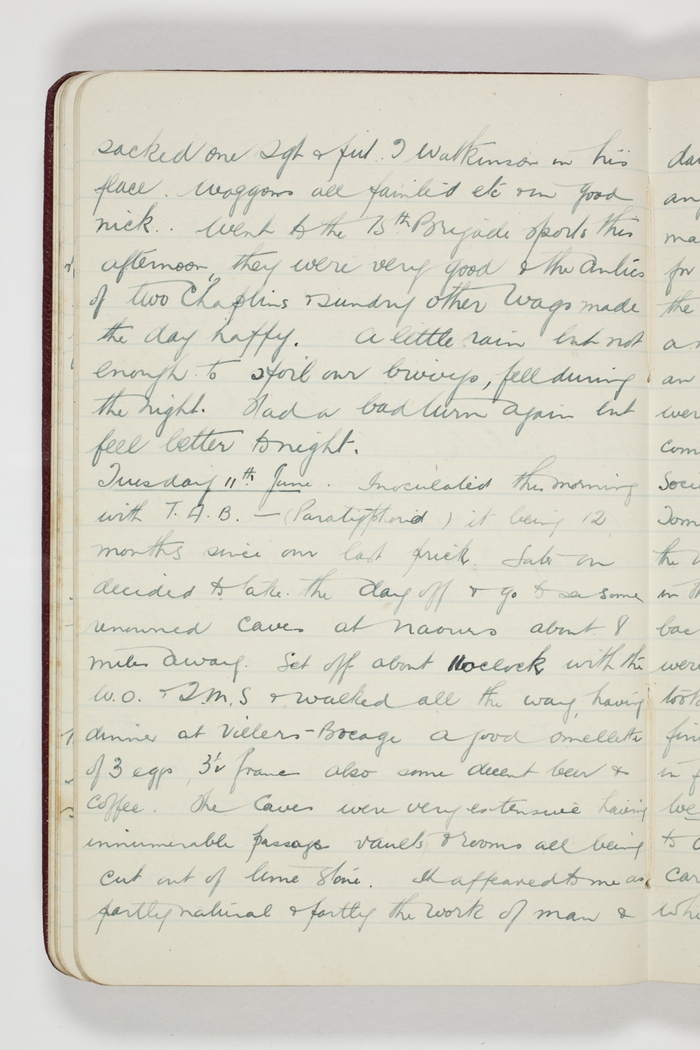 sacked one Sgt & put J Watkinson in his
place. Waggons all painted etc & in good
nick.. Went to the 13th Brigade sports this
afternoon, they were very good & the antics
of two Chaplins & sundry other wags made
the day happy. A little rain but not
enough to spoil our bivvys, fell during
the night. Had a bad turn again but
feel better tonight.
Tuesday 11th June. Inoculated this morning
with T.A.B. — (Paratyphoid) it being 12
months since our last prick. Later on
decided to take the day off & go to see some
renowned caves at Naours about 8
miles away. Set off about 11oclock with the
W.O. & Q.M.S & walked all the way, having
dinner at Villers-Bocage a good omellette
of 3 eggs, 3½ francs also some decent beer &
coffee. The Caves were very extensive having
innumerable passages vaults & rooms all being
cut out of lime stone. It appeared to me as
partly natural & partly the work of man &